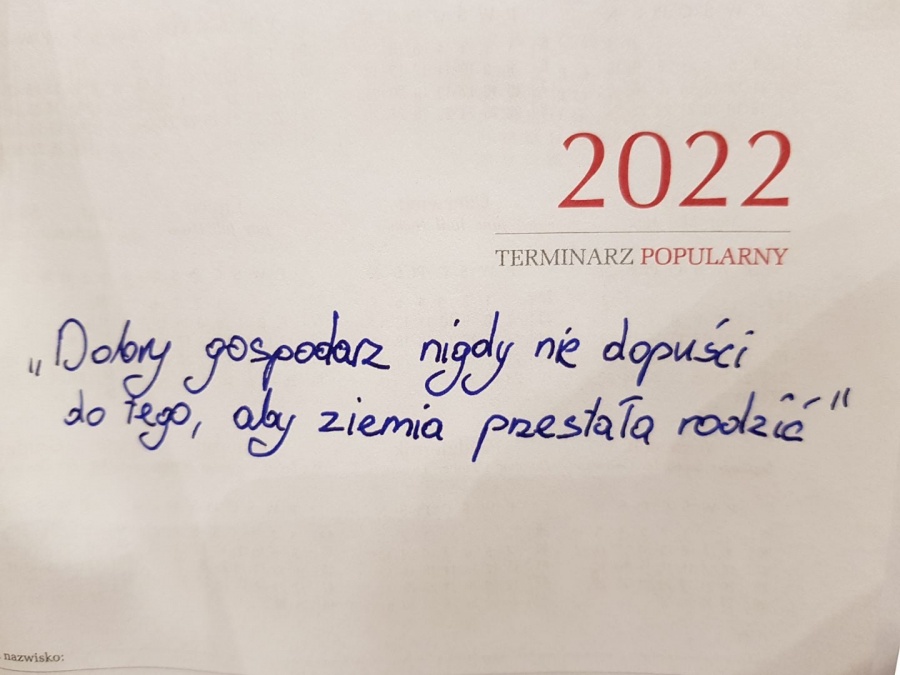 2022
TERMINARZ POPULARNY
„Dobry gospodarz nigdy nie dopuści
do tego, aby ziemia przestała rodzić"
nazwisko: